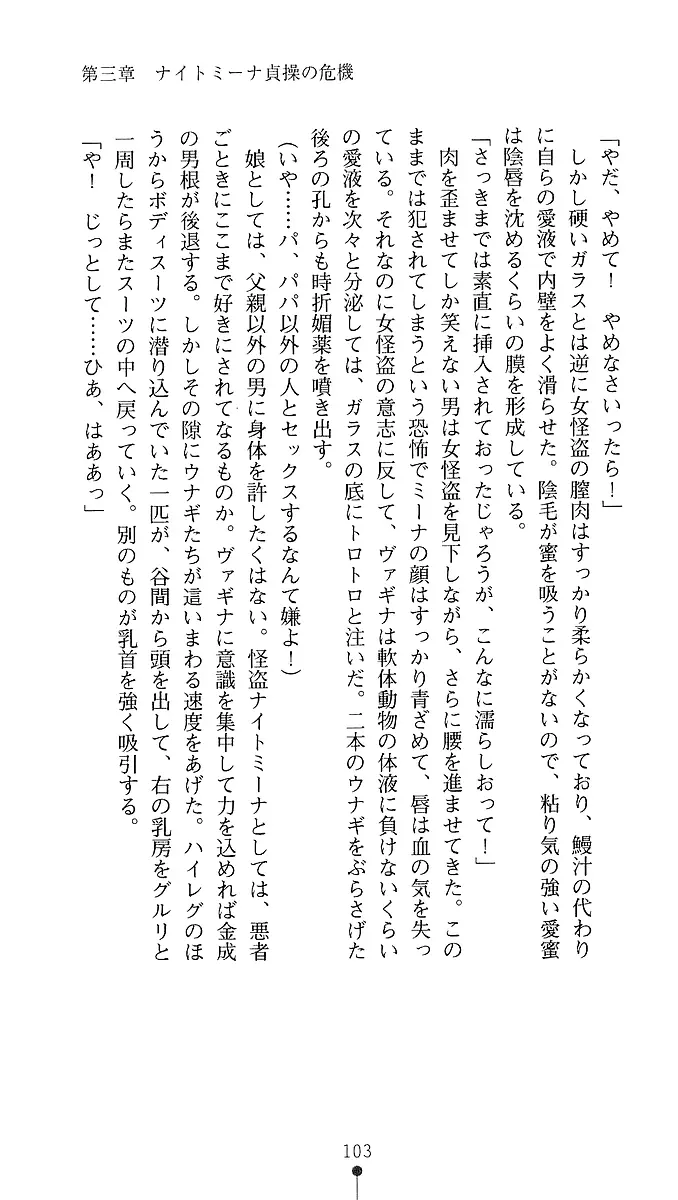 第三章　ナイトミーナ貞操の危機
「やだ、やめて！　やめなさいったら！」
　しかし硬いガラスとは逆に女怪盗の膣肉はすっかり柔らかくなっており、鰻汁の代わり
に自らの愛液で内壁をよく滑らせた。陰毛が蜜を吸うことがないので、粘り気の強い愛蜜
は陰唇を沈めるくらいの膜を形成している。
「さっきまでは素直に挿入されておったじゃろうが、こんなに濡らしおって！」
　肉を歪ませてしか笑えない男は女怪盗を見下しながら、さらに腰を進ませてきた。この
ままでは犯されてしまうという恐怖でミーナの顔はすっかり青ざめて、唇は血の気を失っ
ている。それなのに女怪盗の意志に反して、ヴァギナは軟体動物の体液に負けないくらい
の愛液を次々と分泌しては、ガラスの底にトロトロと注いだ。二本のウナギをぶらさげた
後ろの孔からも時折媚薬を噴き出す。
（いや……パ、パパ以外の人とセックスするなんて嫌よ！）
　娘としては、父親以外の男に身体を許したくはない。怪盗ナイトミーナとしては、悪者
ごときにここまで好きにされてなるものか。ヴァギナに意識を集中して力を込めれば金成
の男根が後退する。しかしその隙にウナギたちが這いまわる速度をあげた。ハイレグのほ
うからボディスーツに潜り込んでいた一匹が、谷間から頭を出して、右の乳房をグルリと
一周したらまたスーツの中へ戻っていく。別のものが乳首を強く吸引する。
「や！　じっとして……ひあ、はああっ」
103